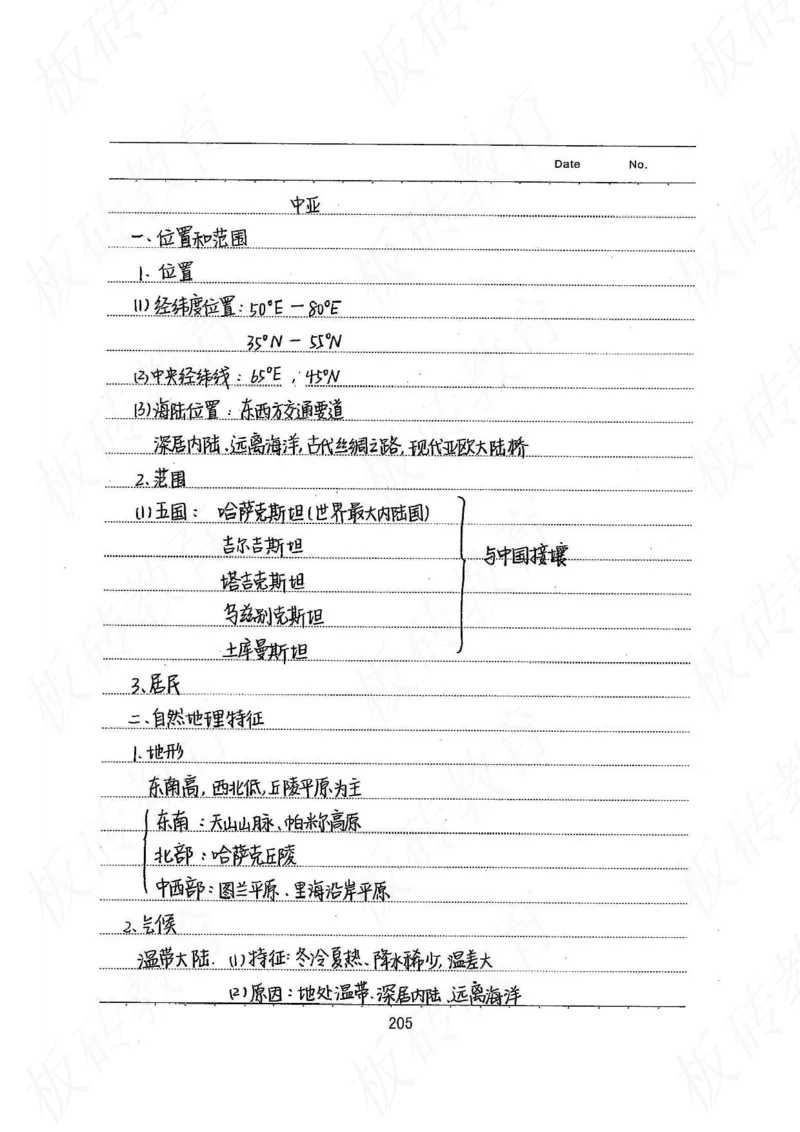 Date No.
中亚
一、位置和范围
1. 位置
(1) 经纬度位置：50°E — 80°E
35°N — 55°N
(2) 中央经纬线：65°E，45°N
(3) 海陆位置：东西方交通要道
深居内陆、远离海洋，古代丝绸之路，现代亚欧大陆桥
2、范围
(1) 五国：哈萨克斯坦(世界最大内陆国)
吉尔吉斯坦
与中国接壤
塔吉克斯坦
乌兹别克斯坦
土库曼斯坦
3、居民
二、自然地理特征
1、地形
东南高，西北低，丘陵平原为主
东南：天山山脉、帕米尔高原
北部：哈萨克丘陵
中西部：图兰平原、里海沿岸平原
2、气候
温带大陆. (1) 特征：冬冷夏热、降水稀少，温差大
(2) 原因：地处温带.深居内陆、远离海洋
205
板砖教育